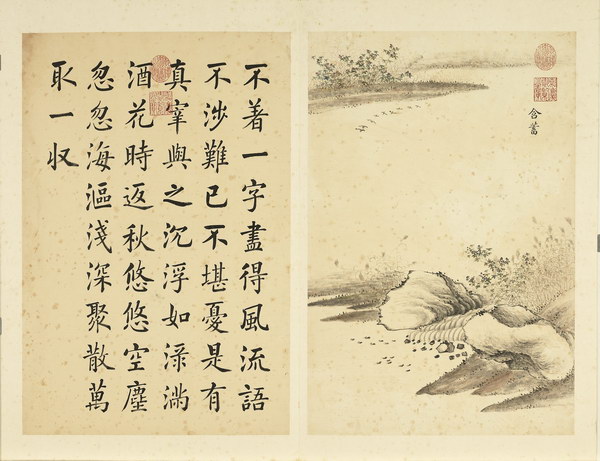 含蓄
不着一字盡得風流語
不涉難已不堪憂是有
真宰與之沉浮如渌滿
酒花時返秋悠悠空塵
忽忽海漚淺深聚散萬
取一収